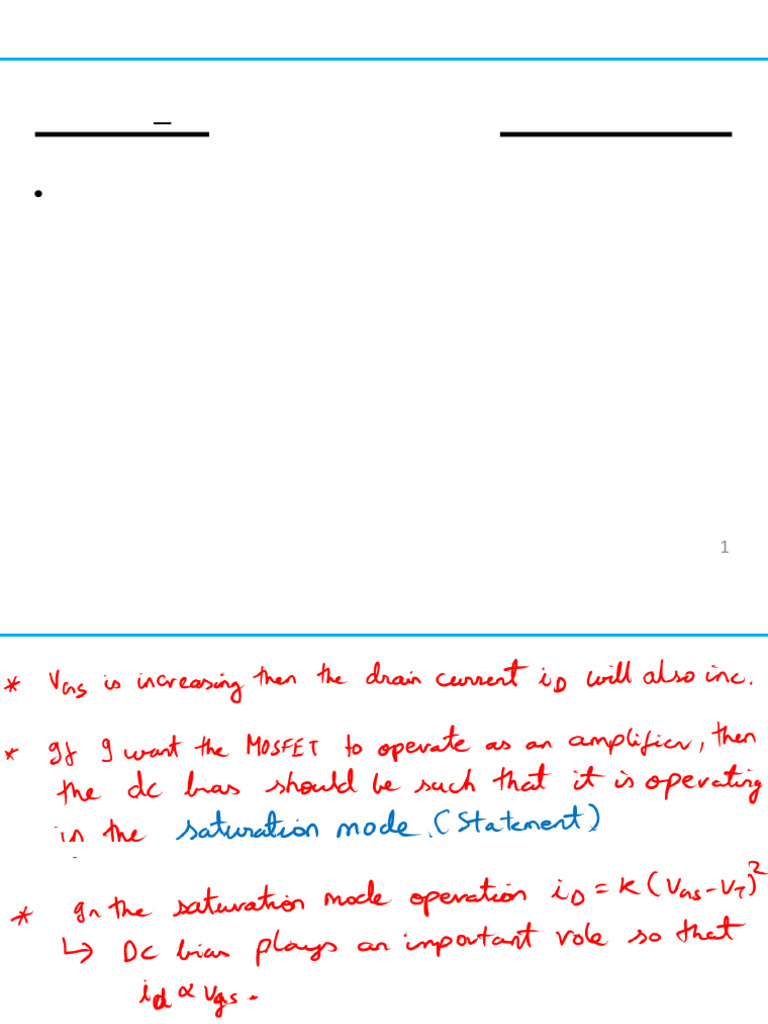 •
1
* VGS is increasing then the drain current iD will also inc.
* If I want the MOSFET to operate as an amplifier, then
the dc bias should be such that it is operating
in the saturation mode. (Statement)
* In the saturation mode operation iD = K (VGS - VT)²
↳ DC bias plays an important role so that
id ∝ vgs.